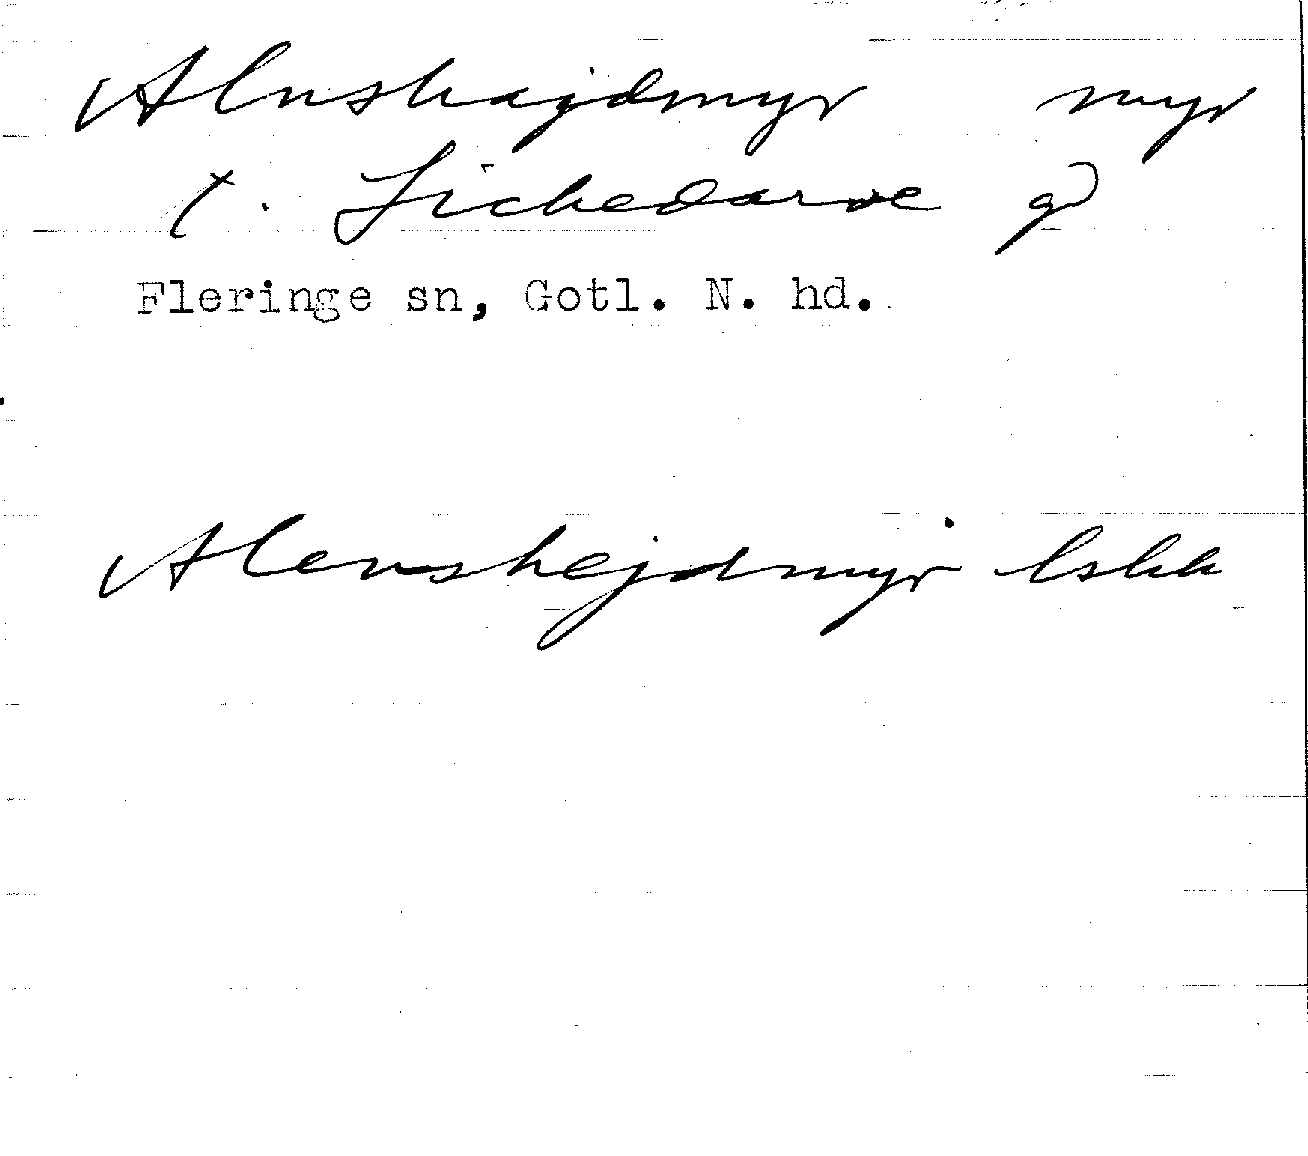 Alnshajdmyr myr
t. Lickedarve gd
Fleringe sn, Gotl. N. hd.
Alenshejdmyr lskk